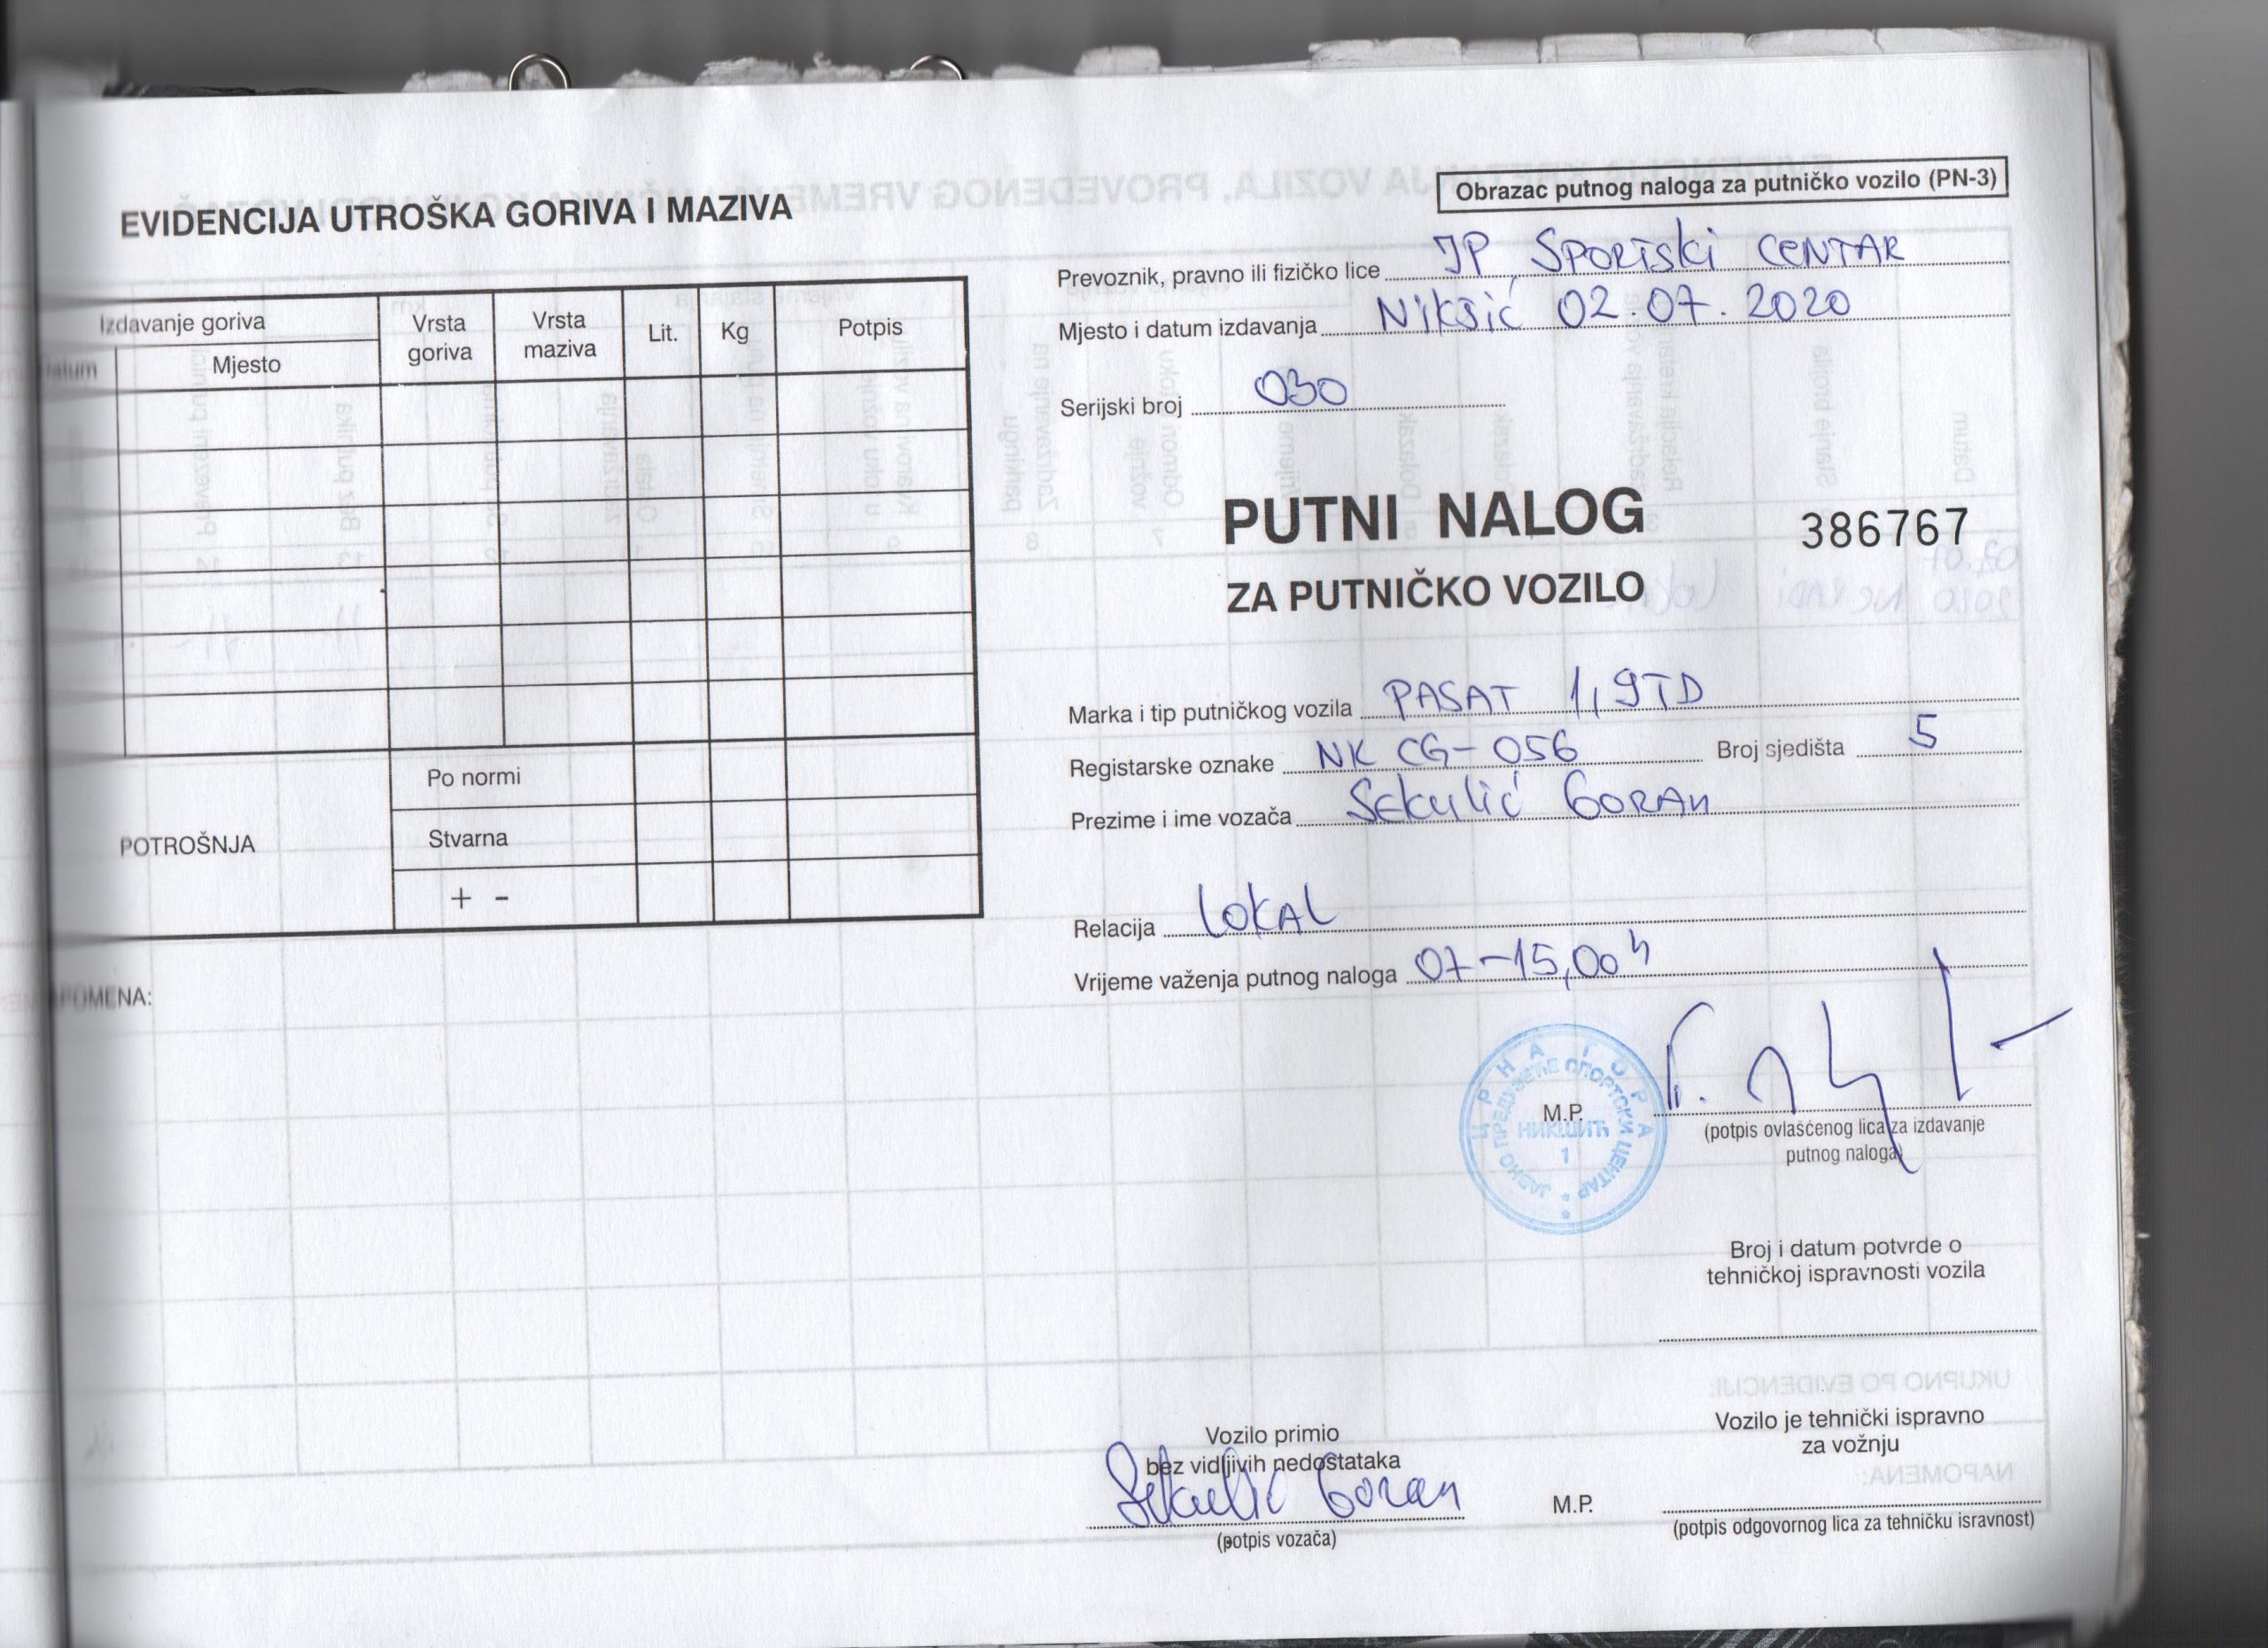 EVIDENCIJA UTROŠKA GORIVA I MAZIVA
Izdavanje goriva
Mjesto
Vrsta goriva
Vrsta maziva
Lit.
Kg
Potpis
POTROŠNJA
Po normi
Stvarna
+ -
POMENA:
Obrazac putnog naloga za putničko vozilo (PN-3)
Prevoznik, pravno ili fizičko lice JP SPORTSKI CENTAR
Mjesto i datum izdavanja Nikšić 02.07.2020
Serijski broj 030
PUTNI NALOG
386767
ZA PUTNIČKO VOZILO
Marka i tip putničkog vozila PASAT 1,9TD
Registarske oznake NK CG-056 Broj sjedišta 5
Prezime i ime vozača Sekulić GORAN
Relacija LOKAL
Vrijeme važenja putnog naloga 07-15,00 h
ЦРНА ГОРА
ЈАВНО ПРЕДУЗЕЋЕ СПОРТСКИ ЦЕНТАР
НИКШИЋ
1
M.P.
(potpis ovlašćenog lica za izdavanje
putnog naloga)
Broj i datum potvrde o
tehničkoj ispravnosti vozila
Vozilo primio
bez vidljivih nedostataka
Sekulić Goran
(potpis vozača)
M.P.
Vozilo je tehnički ispravno
za vožnju
(potpis odgovornog lica za tehničku isravnost)